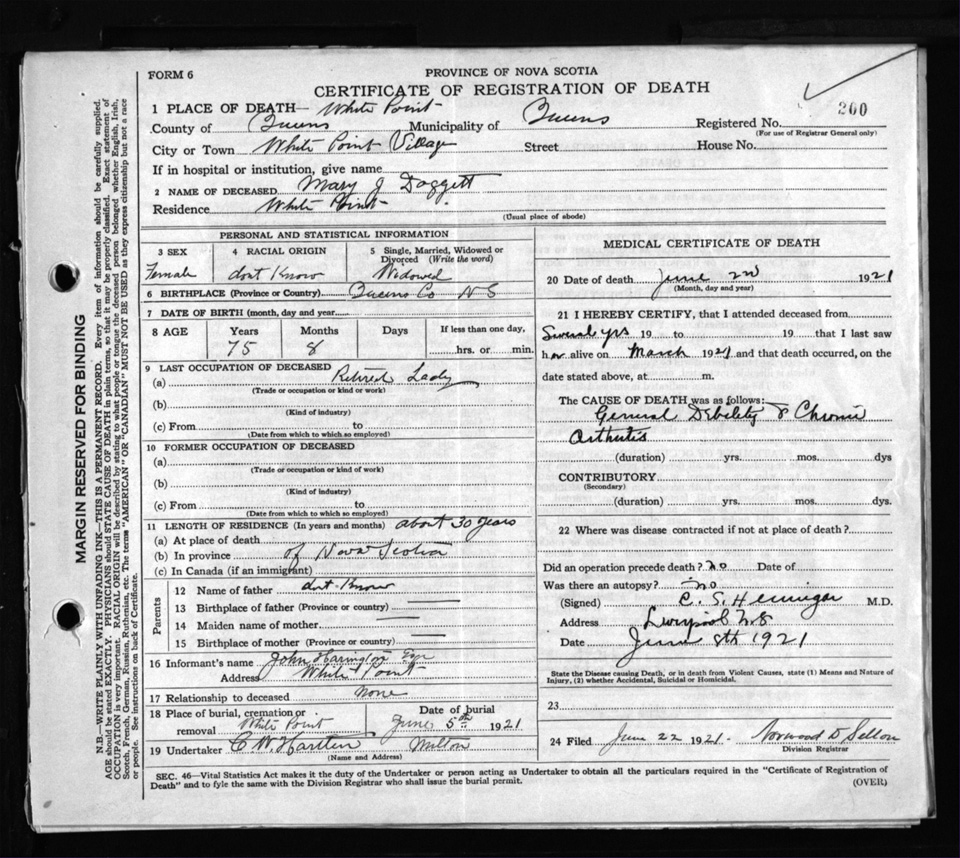 FORM 6
PROVINCE OF NOVA SCOTIA
CERTIFICATE OF REGISTRATION OF DEATH
1 PLACE OF DEATH— White Point
County of Queens Municipality of Queens Registered No. 200
(For use of Registrar General only)
City or Town White Point Village Street House No.
If in hospital or institution, give name
2 NAME OF DECEASED Mary J Doggett
Residence White Point
(Usual place of abode)
PERSONAL AND STATISTICAL INFORMATION
3 SEX 4 RACIAL ORIGIN 5 Single, Married, Widowed or
Divorced (Write the word)
Female dont Know Widowed
6 BIRTHPLACE (Province or Country) Queens Co NS
7 DATE OF BIRTH (month, day and year)
8 AGE Years Months Days If less than one day,
75 8 hrs. or min.
9 LAST OCCUPATION OF DECEASED
(a) Retired Lady
(Trade or occupation or kind or work)
(b)
(Kind of industry)
(c) From to
(Date from which to which so employed)
10 FORMER OCCUPATION OF DECEASED
(a)
(Trade or occupation or kind of work)
(b)
(Kind of industry)
(c) From to
(Date from which to which so employed)
11 LENGTH OF RESIDENCE (In years and months) about 30 years
(a) At place of death
(b) In province of Nova Scotia
(c) In Canada (if an immigrant)
Parents
12 Name of father dont Know
13 Birthplace of father (Province or country)
14 Maiden name of mother
15 Birthplace of mother (Province or country)
16 Informant's name John Harington Esqr
Address White Point
17 Relationship to deceased None
18 Place of burial, cremation or Date of burial
removal White Point June 5th 1921
19 Undertaker C W Hartlen Milton
(Name and Address)
MEDICAL CERTIFICATE OF DEATH
20 Date of death June 2nd 1921
(Month, day and year)
21 I HEREBY CERTIFY, that I attended deceased from
Several yrs 19 to 19 that I last saw
her alive on March 1921 and that death occurred, on the
date stated above, at m.
The CAUSE OF DEATH was as follows:
General Debility & Chronic
Arthritis
(duration) yrs. mos. dys
CONTRIBUTORY
(Secondary)
(duration) yrs. mos. dys.
22 Where was disease contracted if not at place of death?
Did an operation precede death? no Date of
Was there an autopsy? no
(Signed) C. S. Henniger M.D.
Address Liverpool NS
Date June 8th 1921
State the Disease causing Death, or in death from Violent Causes, state (1) Means and Nature of
Injury, (2) whether Accidental, Suicidal or Homicidal.
23
24 Filed June 22 1921. Norwood D Sellon
Division Registrar
SEC. 46—Vital Statistics Act makes it the duty of the Undertaker or person acting as Undertaker to obtain all the particulars required in the "Certificate of Registration of
Death" and to fyle the same with the Division Registrar who shall issue the burial permit. (OVER)
MARGIN RESERVED FOR BINDING
N.B.—WRITE PLAINLY WITH UNFADING INK—THIS IS A PERMANENT RECORD. Every item of information should be carefully supplied.
AGE should be stated EXACTLY. PHYSICIANS should STATE CAUSE OF DEATH in plain terms, so that it may be properly classified. Exact statement of
OCCUPATION is very important. RACIAL ORIGIN will be described by stating to what people or tongue the deceased person belonged whether English, Irish,
Scotch, French, German, Russian, Ruthenian, etc. The terms "AMERICAN" OR "CANADIAN" MUST NOT BE USED as they express citizenship but not a race
or people. See instructions on back of Certificate.